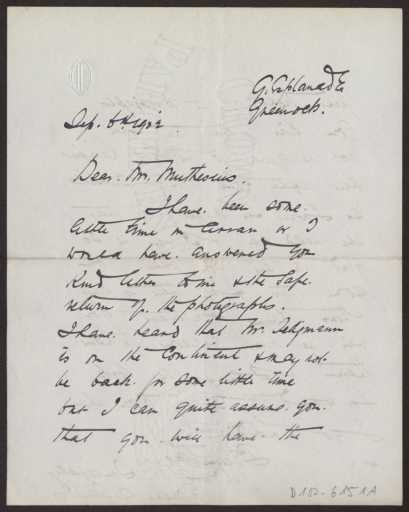 G. Esplanade
Greenock.
Sep. 6th 1902
Dear Mr. Muthesius.
I have been some
little time in Arran or I
would have answered your
kind letter to me & the safe
return of the photographs.
I have heard that Mr.
is on the Continent & may not
be back for some little time
but I can quite assure you
that you will have the
D 102-6151 A